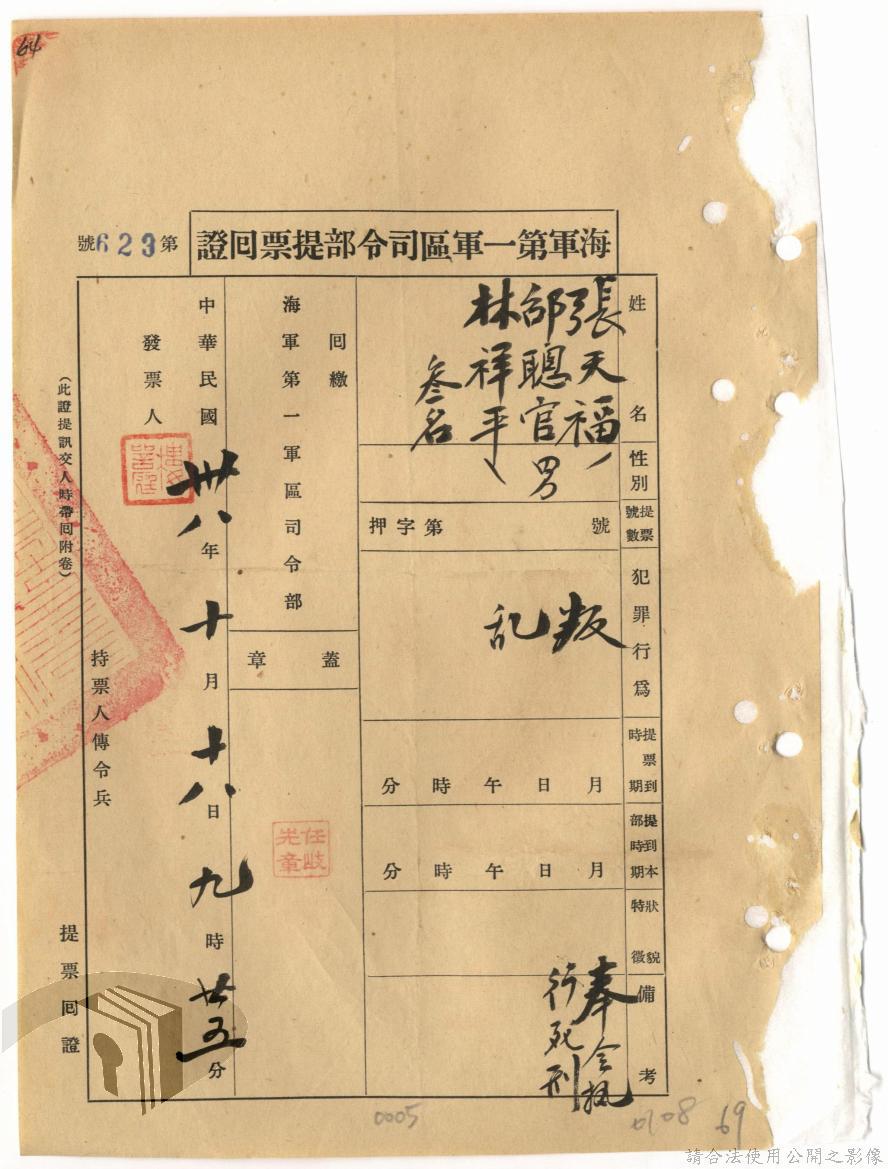 64
海軍第一軍區司令部提票囘證
第623號
姓名
張天福
邰聰官
林祥平
叁名
性別
男
提票號數
第字押
號
犯罪行爲
叛乱
提票到時期
月日午時分
提到本部時期
月日午時分
狀貌特徵
備考
奉令执
行死刑
囘繳
海軍第一軍區司令部
蓋章
任岐
光章
中華民國卅八年十月十八日九時廿五分
發票人
持票人傳令兵
(此證提訊交人時帶囘附卷)
提票囘證
0005
0708
69
請合法使用公開之影像